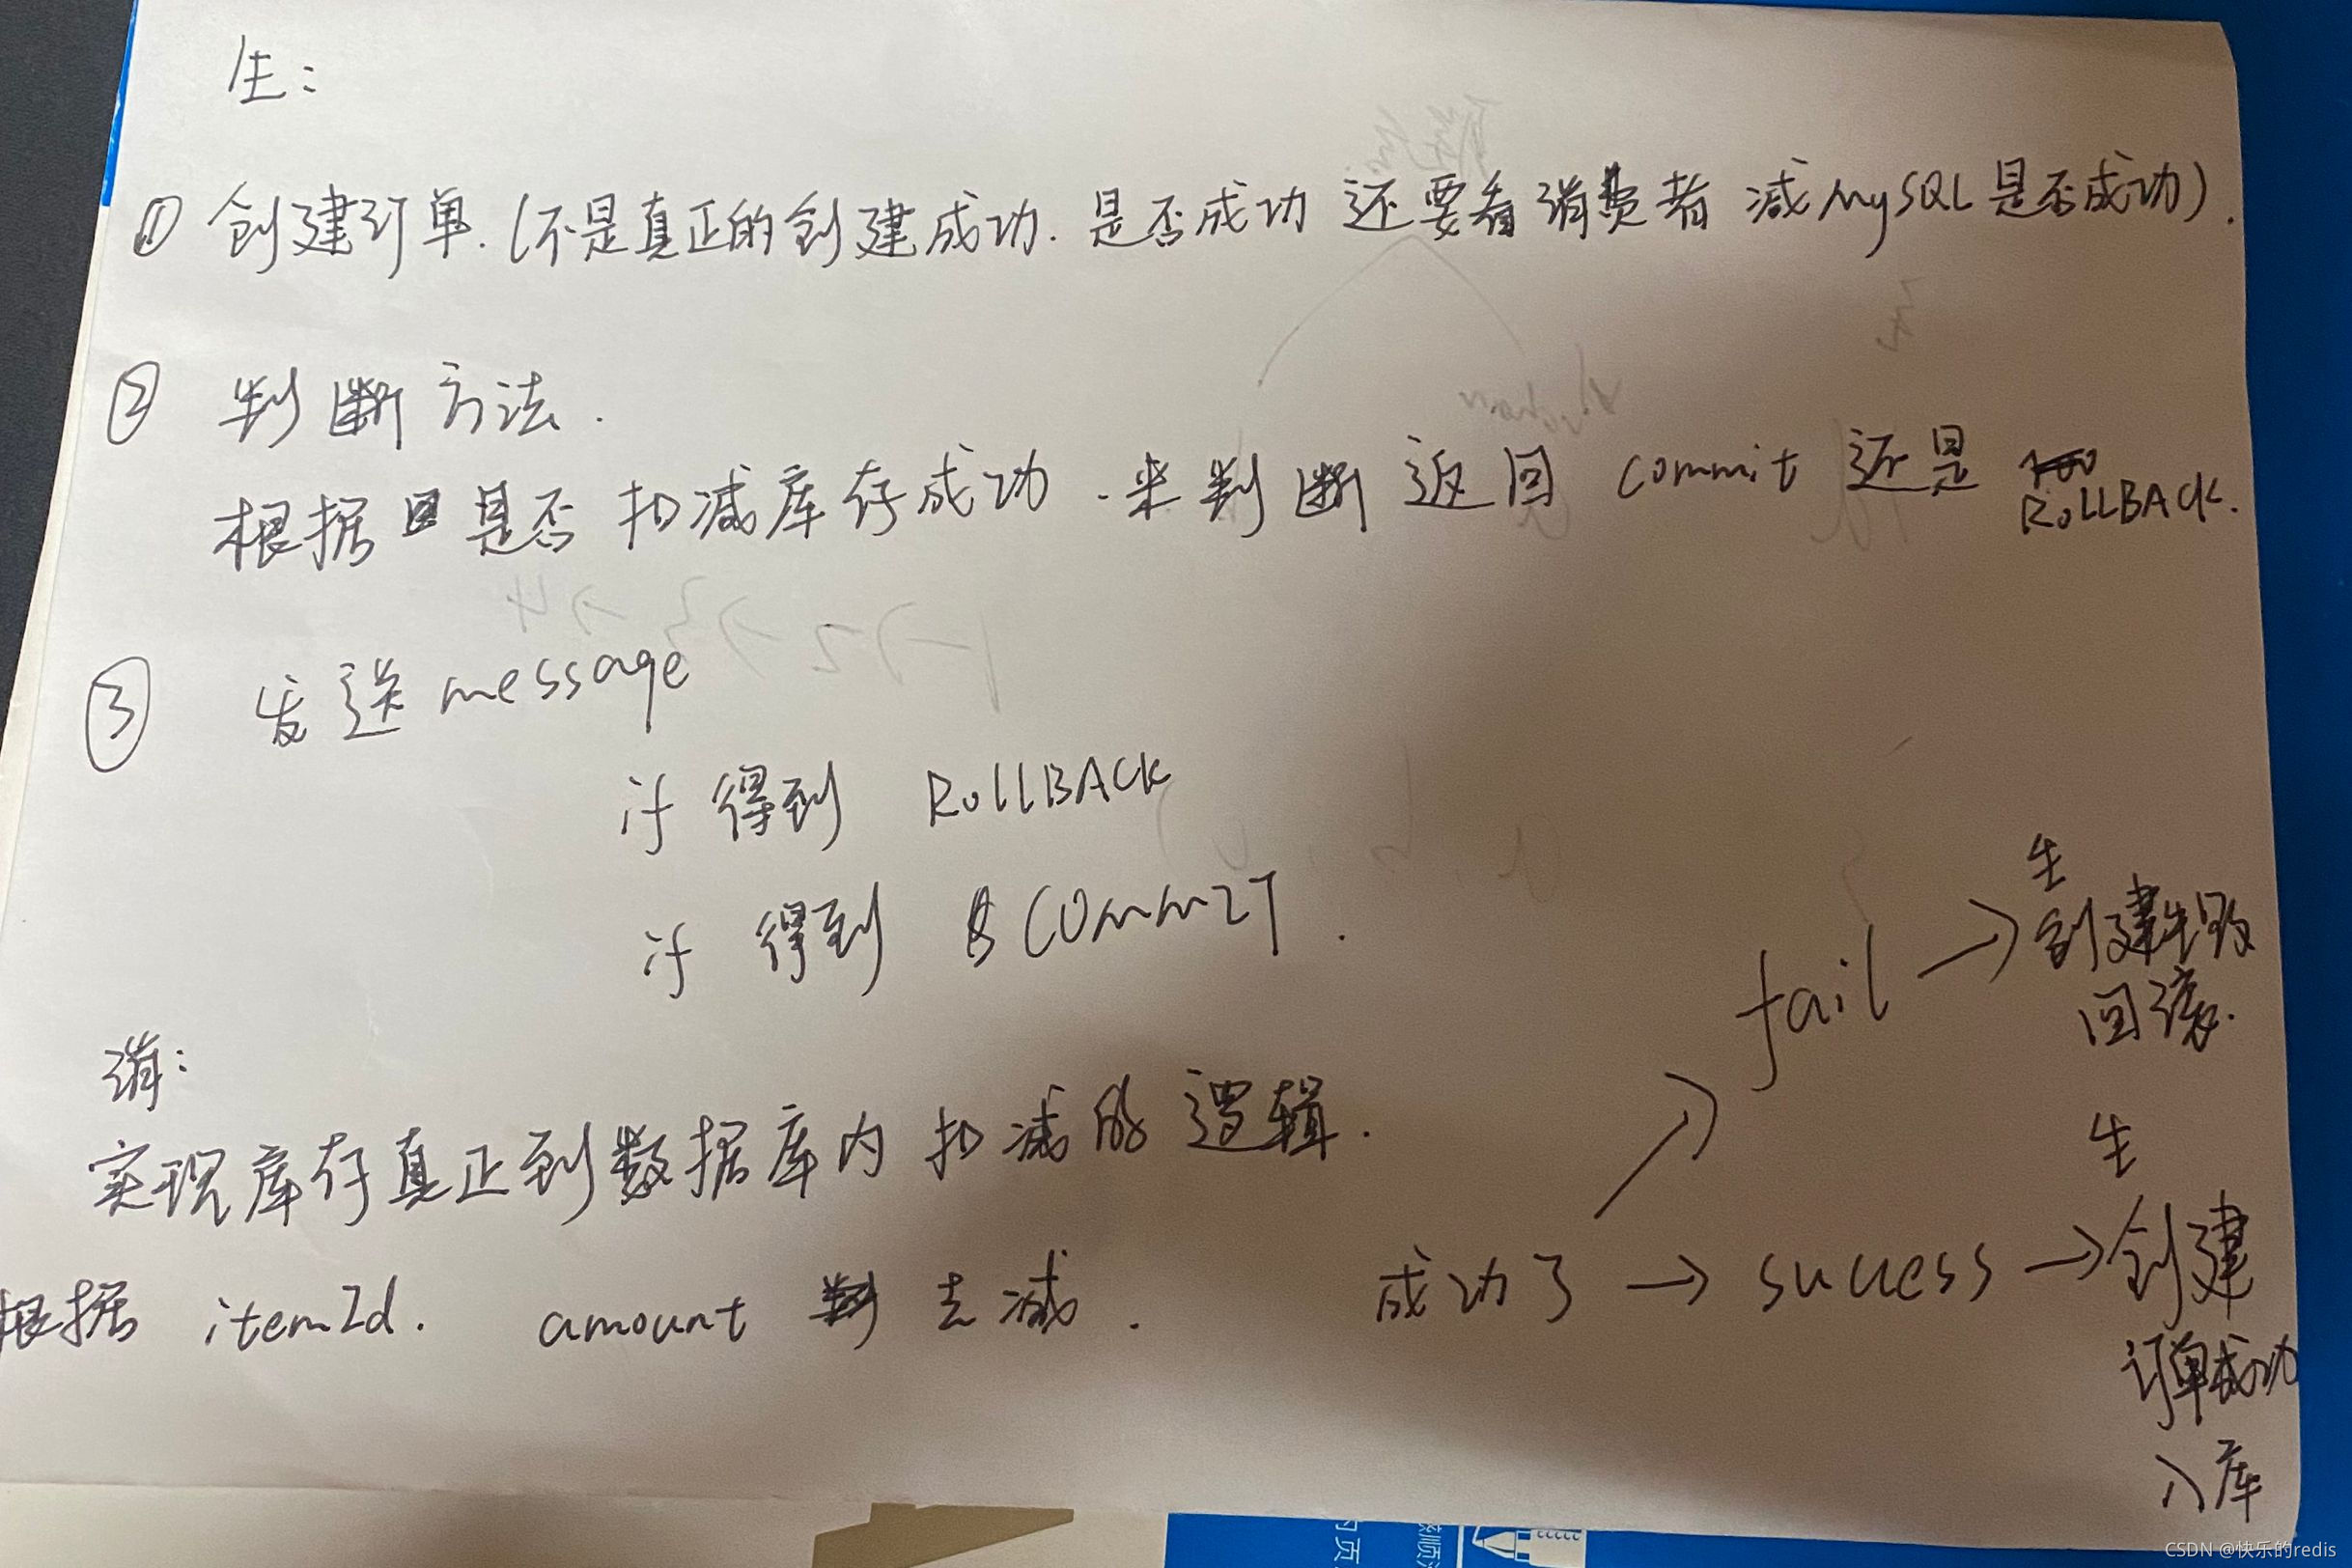 生：
① 创建订单.(不是真正的创建成功.是否成功 还要看消费者 减MySQL是否成功).
② 判断方法.
根据是否 扣减库存成功.来判断 返回 commit 还是 ROLLBACK.
③ 发送 message
if 得到 RollBACK
if 得到 COMMIT.
消：
实现库存真正到数据库内 扣减的逻辑.
根据 itemId. amount 去减.
成功了 → success → 生
创建
订单成功
入库
fail → 生
创建失败
回滚.
CSDN @快乐的redis